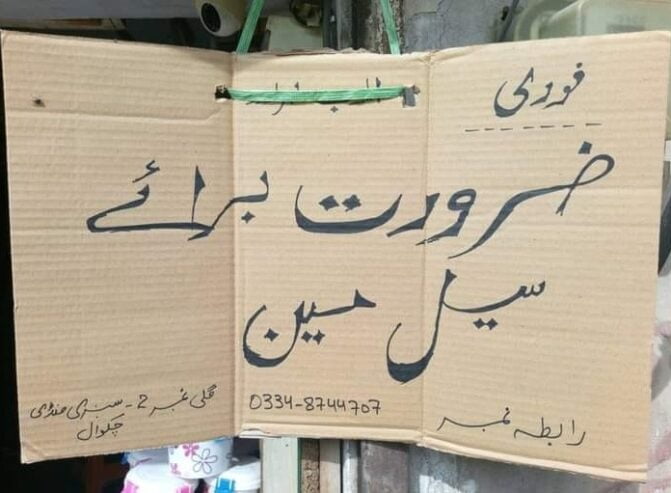 فوری
ضرورت برائے
سیل حسین
رابطہ نمبر 0334-8744707
گلی نمبر 2 - سبزی منڈی
چکوال